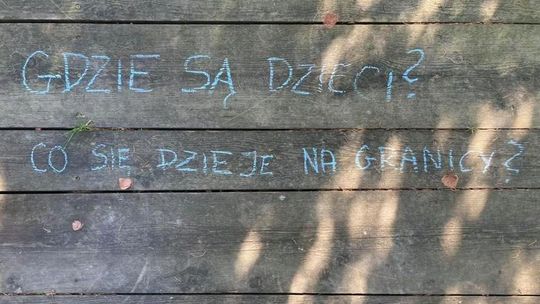 GDZIE SĄ DZIECI?
CO SIĘ DZIEJE NA GRANICY?